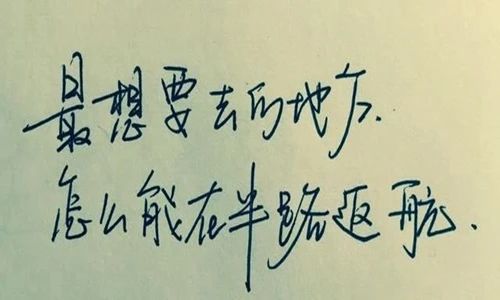 最想要去的地方.
怎么能在半路返航.